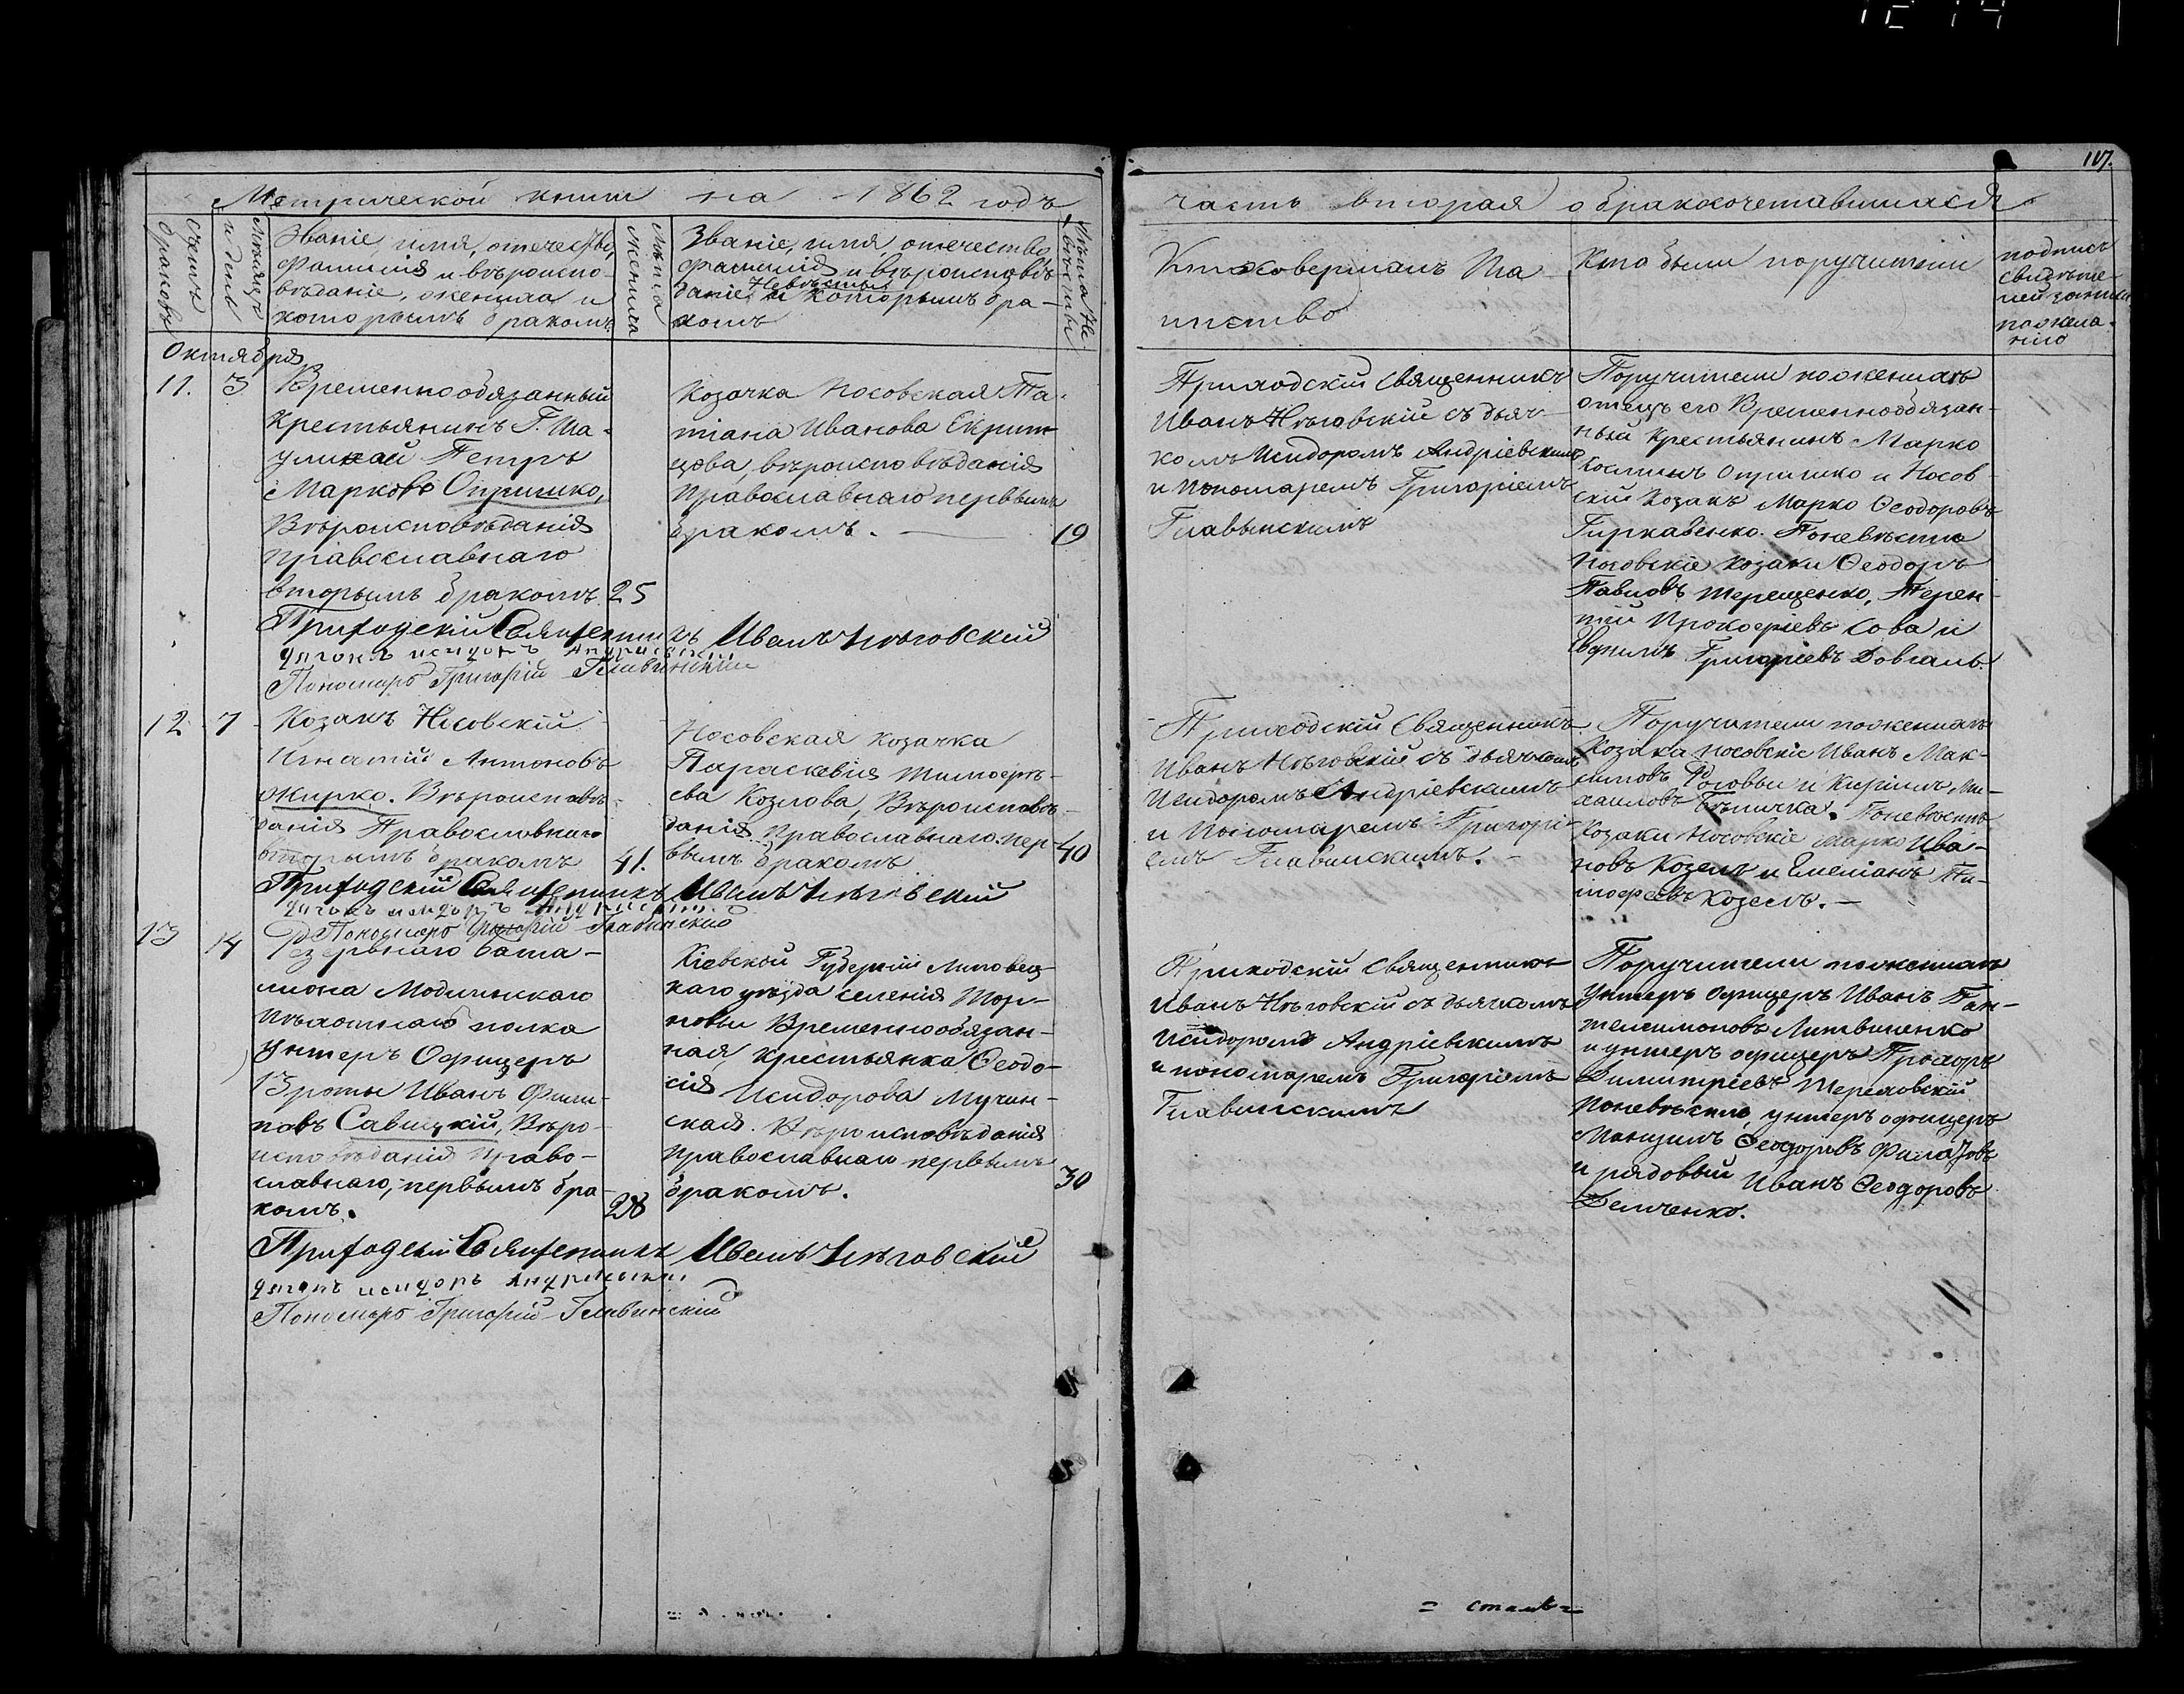 107.
Метрической книги на 1862 годъ
часть вторая о бракосочетавшихся
Счетъ
браковъ
Мѣсяцъ
и день
Званіе, имя, отечество,
фамилія и вѣроиспо-
вѣданіе, жениха и
которымъ бракомъ
Лѣта
жениха
Званіе, имя, отечество
фамилія и вѣроисповѣ-
даніе Невѣсты и которымъ бра-
комъ
Лѣта Не-
вѣсты
Кто совершалъ Та
инство
Кто были поручители
подпись
свидѣте-
лей записи
по жела-
нію
Октября
11. 3
Временнообязанный
Крестьянинъ Г. Ша-
Петръ
Марковъ Опришко,
Вѣроисповѣданія
православнаго
вторымъ бракомъ. 25
Козачка Носовская Та-
тіана Иванова
вѣроисповѣданія
православнаго первымъ
бракомъ. 19
Приходскій священникъ
Иванъ Нѣговскій съ дьяч-
комъ Исидоромъ Андріевскимъ
и пономаремъ Григоріемъ
Главынскимъ
Поручители по женихѣ
отецъ его Временнообязан-
ный крестьянинъ Марко
Косминъ Опришко и Носов-
скій Козакъ Марко Ѳеодоровъ
Гиркавенко. По невѣстѣ
Носовскіе козаки Ѳеодоръ
Павловъ Терещенко, Терен-
тій Прокофіевъ Сова и
Григоріевъ Довгаль.
Приходскій Священникъ Иванъ Нѣговскій
дячокъ исидоръ Андріевскій
Пономарь Григорій Главинскій
12 7
Козакъ Носовскій
Игнатій Антоновъ
Жирко. Вѣроисповѣ-
данія Православнаго
вторымъ бракомъ 41.
Носовская козачка
Параскевія Тимоѳее-
ва Козлова, Вѣроисповѣ-
данія православнаго пер-
вымъ бракомъ 40
Приходскій Священникъ
Иванъ Нѣговскій съ дьячкомъ
Исидоромъ Андріевскимъ
и Пономаремъ Григорі-
емъ Главинскимъ.
Поручители по женихѣ
Козаки Носовскіе Иванъ Мак-
симовъ и Кирилъ Ми-
хаиловъ По невѣстѣ
Козаки Носовскіе Марко Ива-
новъ Козелъ и Емеліанъ Ти-
мофеевъ Козелъ.
Приходскій Священникъ Иванъ Нѣговскій
дячокъ исидоръ Андріевскій
Пономарь Григорій Главинскій
13 14
Резервнаго бата-
ліона Модлинскаго
Пѣхотнаго полка
Унтеръ Офицеръ
13 роты Иванъ Фили-
повъ Савицкій, Вѣро-
исповѣданія право-
славнаго, первымъ бра-
комъ. 28
Кіевской Губерніи Липовец-
каго уѣзда селенія Тор-
Временнообязан-
ная крестьянка Ѳеодо-
сія Исидорова Мучин-
ская. Вѣроисповѣданія
православнаго первымъ
бракомъ. 30
Приходскій священникъ
Иванъ Нѣговскій съ дьячкомъ
Исидоромъ Андріевскимъ
и пономаремъ Григоріемъ
Главинскимъ
Поручители по женихѣ
Унтеръ Офицеръ Иванъ Пан-
телеимоновъ Литвиненко
и унтеръ офицеръ Прохоръ
Димитріевъ Тереховскій
По невѣстѣ, унтеръ офицеръ
Максимъ Ѳеодоровъ
и рядовый Иванъ Ѳеодоровъ
Демченко.
Приходскій Священникъ Иванъ Нѣговскій
дячокъ исидоръ Андріевскій
Пономарь Григорій Главинскій